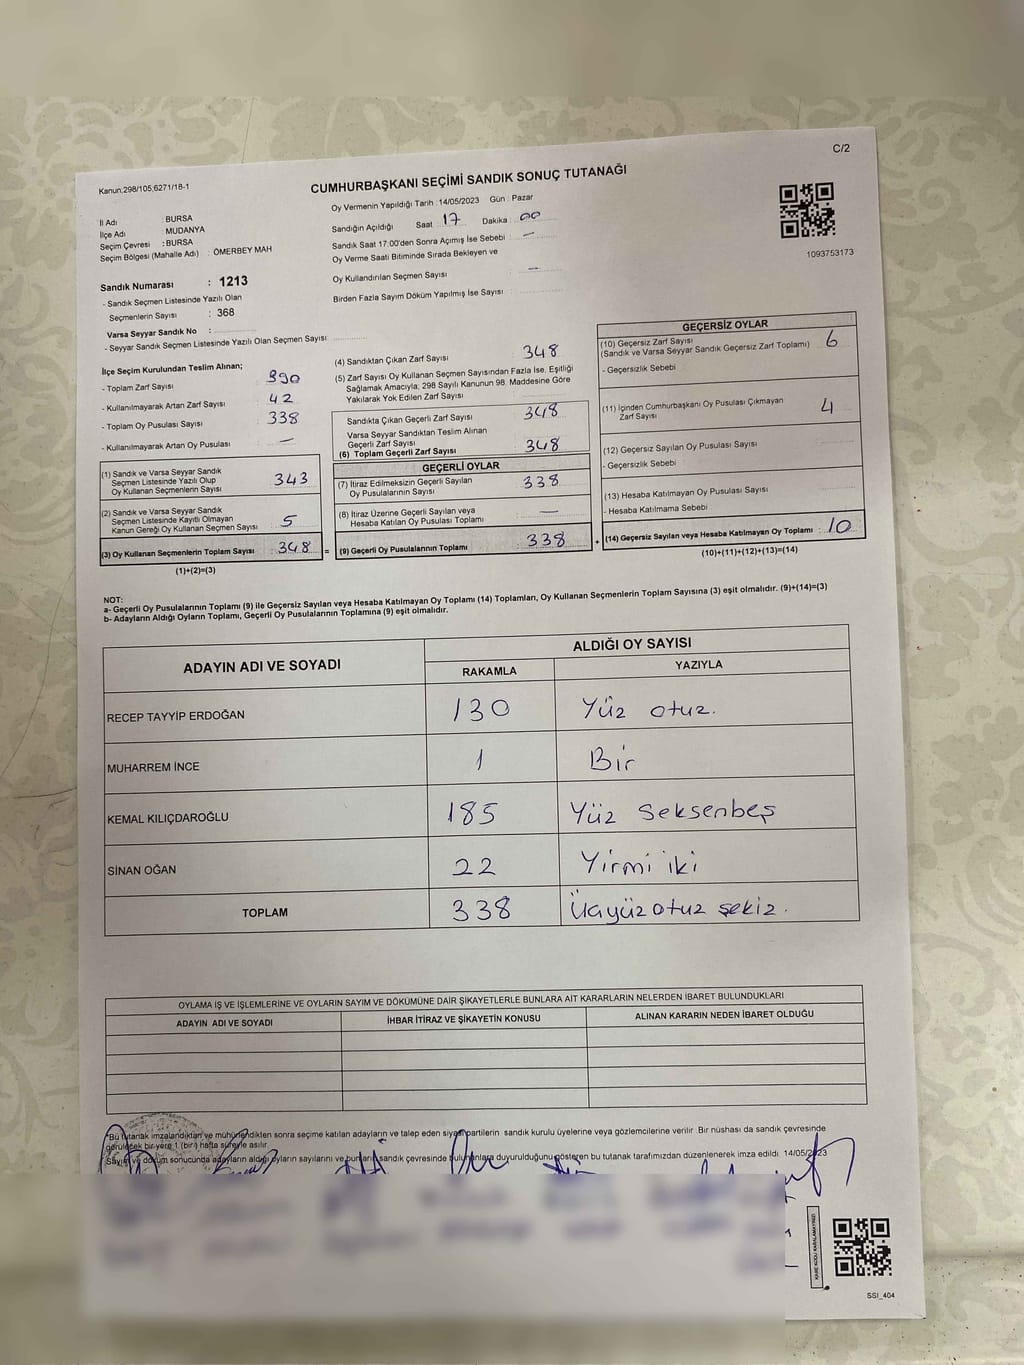 C/2
Kanun;298/105;6271/18-1
CUMHURBAŞKANI SEÇİMİ SANDIK SONUÇ TUTANAĞI
İl Adı : BURSA
İlçe Adı : MUDANYA
Seçim Çevresi : BURSA
Seçim Bölgesi (Mahalle Adı) : ÖMERBEY MAH
Oy Vermenin Yapıldığı Tarih : 14/05/2023 Gün : Pazar
Sandığın Açıldığı Saat 17 Dakika : 00
Sandık Saat 17:00'den Sonra Açımış İse Sebebi : —
Oy Verme Saati Bitiminde Sırada Bekleyen ve
Oy Kullandırılan Seçmen Sayısı : —
Birden Fazla Sayım Döküm Yapılmış İse Sayısı :
1093753173
Sandık Numarası : 1213
- Sandık Seçmen Listesinde Yazılı Olan
Seçmenlerin Sayısı : 368
Varsa Seyyar Sandık No :
- Seyyar Sandık Seçmen Listesinde Yazılı Olan Seçmen Sayısı
İlçe Seçim Kurulundan Teslim Alınan;
- Toplam Zarf Sayısı 390
- Kullanılmayarak Artan Zarf Sayısı : 42
- Toplam Oy Pusulası Sayısı : 338
- Kullanılmayarak Artan Oy Pusulası : —
(1) Sandık ve Varsa Seyyar Sandık
Seçmen Listesinde Yazılı Olup
Oy Kullanan Seçmenlerin Sayısı 343
(2) Sandık ve Varsa Seyyar Sandık
Seçmen Listesinde Kayıtlı Olmayan
Kanun Gereği Oy Kullanan Seçmen Sayısı : 5
(3) Oy Kullanan Seçmenlerin Toplam Sayısı : 348 =
(1)+(2)=(3)
(4) Sandıktan Çıkan Zarf Sayısı : 348
(5) Zarf Sayısı Oy Kullanan Seçmen Sayısından Fazla İse, Eşitliği
Sağlamak Amacıyla; 298 Sayılı Kanunun 98. Maddesine Göre
Yakılarak Yok Edilen Zarf Sayısı :
Sandıkta Çıkan Geçerli Zarf Sayısı : 348
Varsa Seyyar Sandıktan Teslim Alınan
Geçerli Zarf Sayısı
(6) Toplam Geçerli Zarf Sayısı : 348
GEÇERLİ OYLAR
(7) İtiraz Edilmeksizin Geçerli Sayılan
Oy Pusulalarının Sayısı : 338
(8) İtiraz Üzerine Geçerli Sayılan veya
Hesaba Katılan Oy Pusulası Toplamı : —
(9) Geçerli Oy Pusulalarının Toplamı : 338 +
GEÇERSİZ OYLAR
(10) Geçersiz Zarf Sayısı : 6
(Sandık ve Varsa Seyyar Sandık Geçersiz Zarf Toplamı)
- Geçersizlik Sebebi
(11) İçinden Cumhurbaşkanı Oy Pusulası Çıkmayan
Zarf Sayısı : 4
(12) Geçersiz Sayılan Oy Pusulası Sayısı :
- Geçersizlik Sebebi
(13) Hesaba Katılmayan Oy Pusulası Sayısı :
- Hesaba Katılmama Sebebi
(14) Geçersiz Sayılan veya Hesaba Katılmayan Oy Toplamı : 10
(10)+(11)+(12)+(13)=(14)
NOT:
a- Geçerli Oy Pusulalarının Toplamı (9) ile Geçersiz Sayılan veya Hesaba Katılmayan Oy Toplamı (14) Toplamları, Oy Kullanan Seçmenlerin Toplam Sayısına (3) eşit olmalıdır. (9)+(14)=(3)
b- Adayların Aldığı Oyların Toplamı, Geçerli Oy Pusulalarının Toplamına (9) eşit olmalıdır.
ADAYIN ADI VE SOYADI
ALDIĞI OY SAYISI
RAKAMLA YAZIYLA
RECEP TAYYİP ERDOĞAN 130 Yüz otuz.
MUHARREM İNCE 1 Bir
KEMAL KILIÇDAROĞLU 185 Yüz Seksenbeş
SİNAN OĞAN 22 Yirmi iki
TOPLAM 338 Üçyüz otuz şekiz.
OYLAMA İŞ VE İŞLEMLERİNE VE OYLARIN SAYIM VE DÖKÜMÜNE DAİR ŞİKAYETLERLE BUNLARA AİT KARARLARIN NELERDEN İBARET BULUNDUKLARI
ADAYIN ADI VE SOYADI İHBAR İTİRAZ VE ŞİKAYETİN KONUSU ALINAN KARARIN NEDEN İBARET OLDUĞU
*Bu tutanak imzalandıktan ve mühürlendikten sonra seçime katılan adayların ve talep eden siyasi partilerin sandık kurulu üyelerine veya gözlemcilerine verilir. Bir nüshası da sandık çevresinde
görülecek bir yere 1 (bir) hafta süreyle asılır.
Sayım ve döküm sonucunda adayların aldığı oyların sayılarını ve bunların sandık çevresinde bulunanlara duyurulduğunu gösteren bu tutanak tarafımızdan düzenlenerek imza edildi. 14/05/2023
KARE KODU KARALAMAYINIZ!
SSI_404